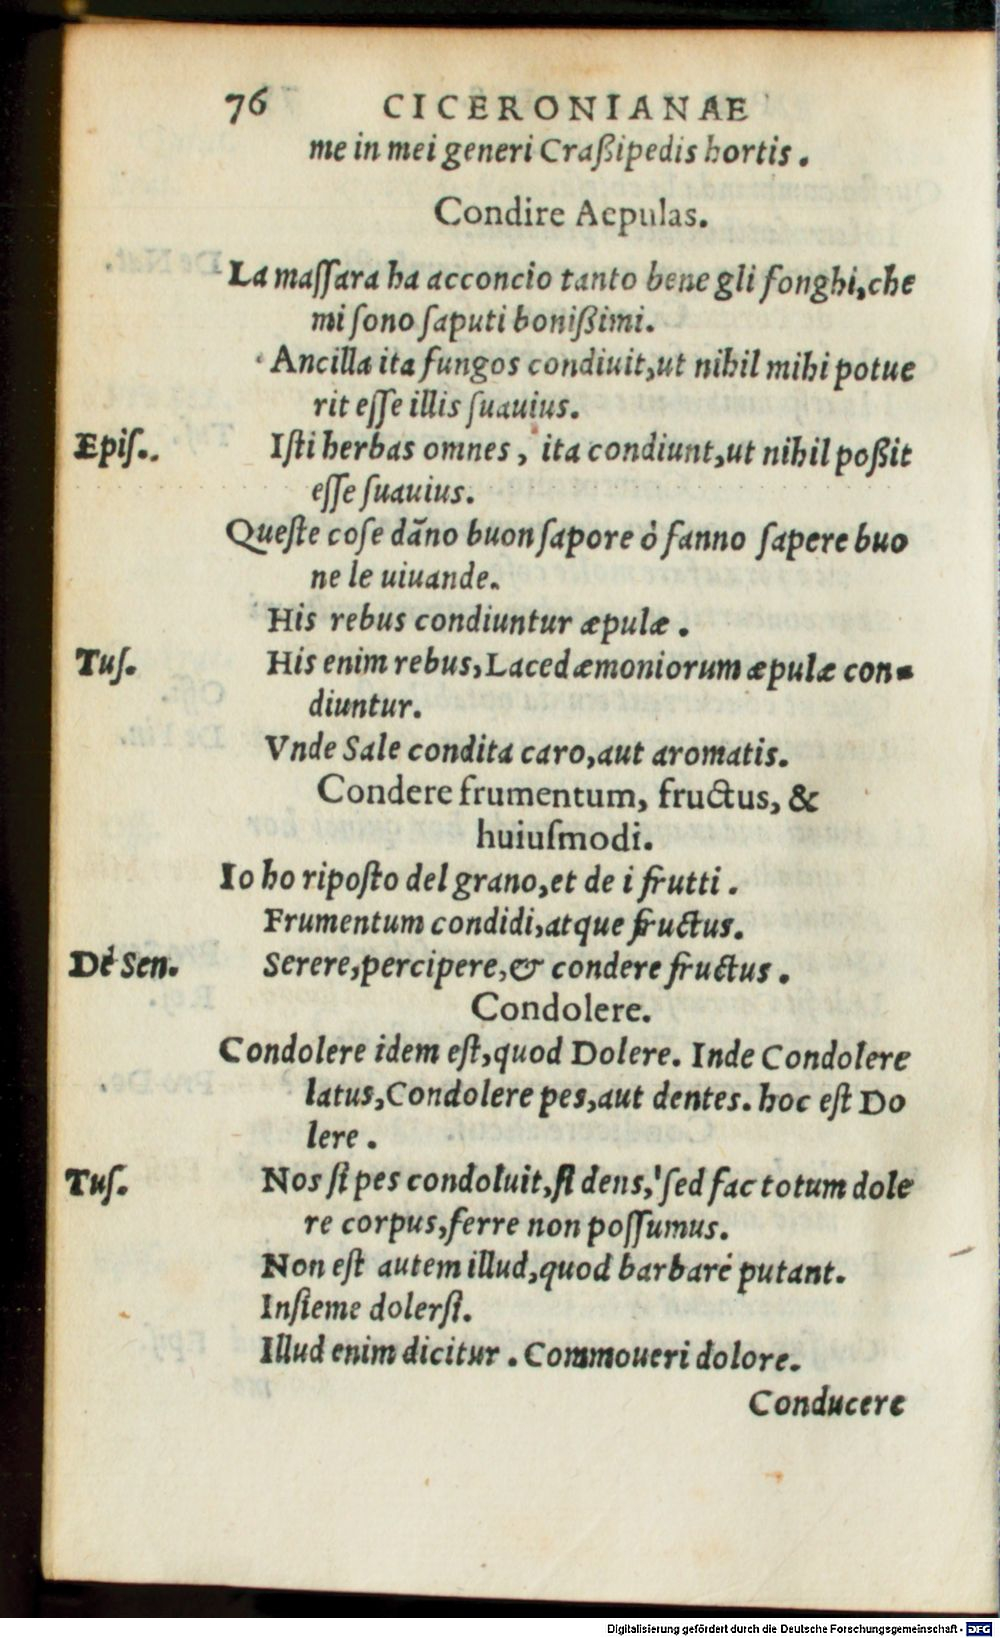 76 CICERONIANAE
me in mei generi Craßipedis hortis.
Condire Aepulas.
La maſſara ha acconcio tanto bene gli fonghi, che
mi ſono ſaputi bonißimi.
Ancilla ita fungos condiuit, ut nihil mihi potue
rit eſſe illis ſuauius.
Epiſ.. Iſti herbas omnes, ita condiunt, ut nihil poßit
eſſe ſuauius.
Queſte coſe dãno buon ſapore ò fanno ſapere buo
ne le uiuande.
His rebus condiuntur æpulæ.
Tuſ. His enim rebus, Lacedæmoniorum æpulæ con-
diuntur.
Vnde Sale condita caro, aut aromatis.
Condere frumentum, fructus, &
huiuſmodi.
Io ho ripoſto del grano, et de i frutti.
Frumentum condidi, atque fructus.
Dè Sen. Serere, percipere, & condere fructus.
Condolere.
Condolere idem eſt, quod Dolere. Inde Condolere
latus, Condolere pes, aut dentes. hoc eſt Do
lere.
Tuſ. Nos ſi pes condoluit, ſi dens, ſed fac totum dole
re corpus, ferre non poſſumus.
Non eſt autem illud, quod barbarè putant.
Inſieme dolerſi.
Illud enim dicitur. Commoueri dolore.
Conducere
Digitalisierung gefördert durch die Deutsche Forschungsgemeinschaft - DFG